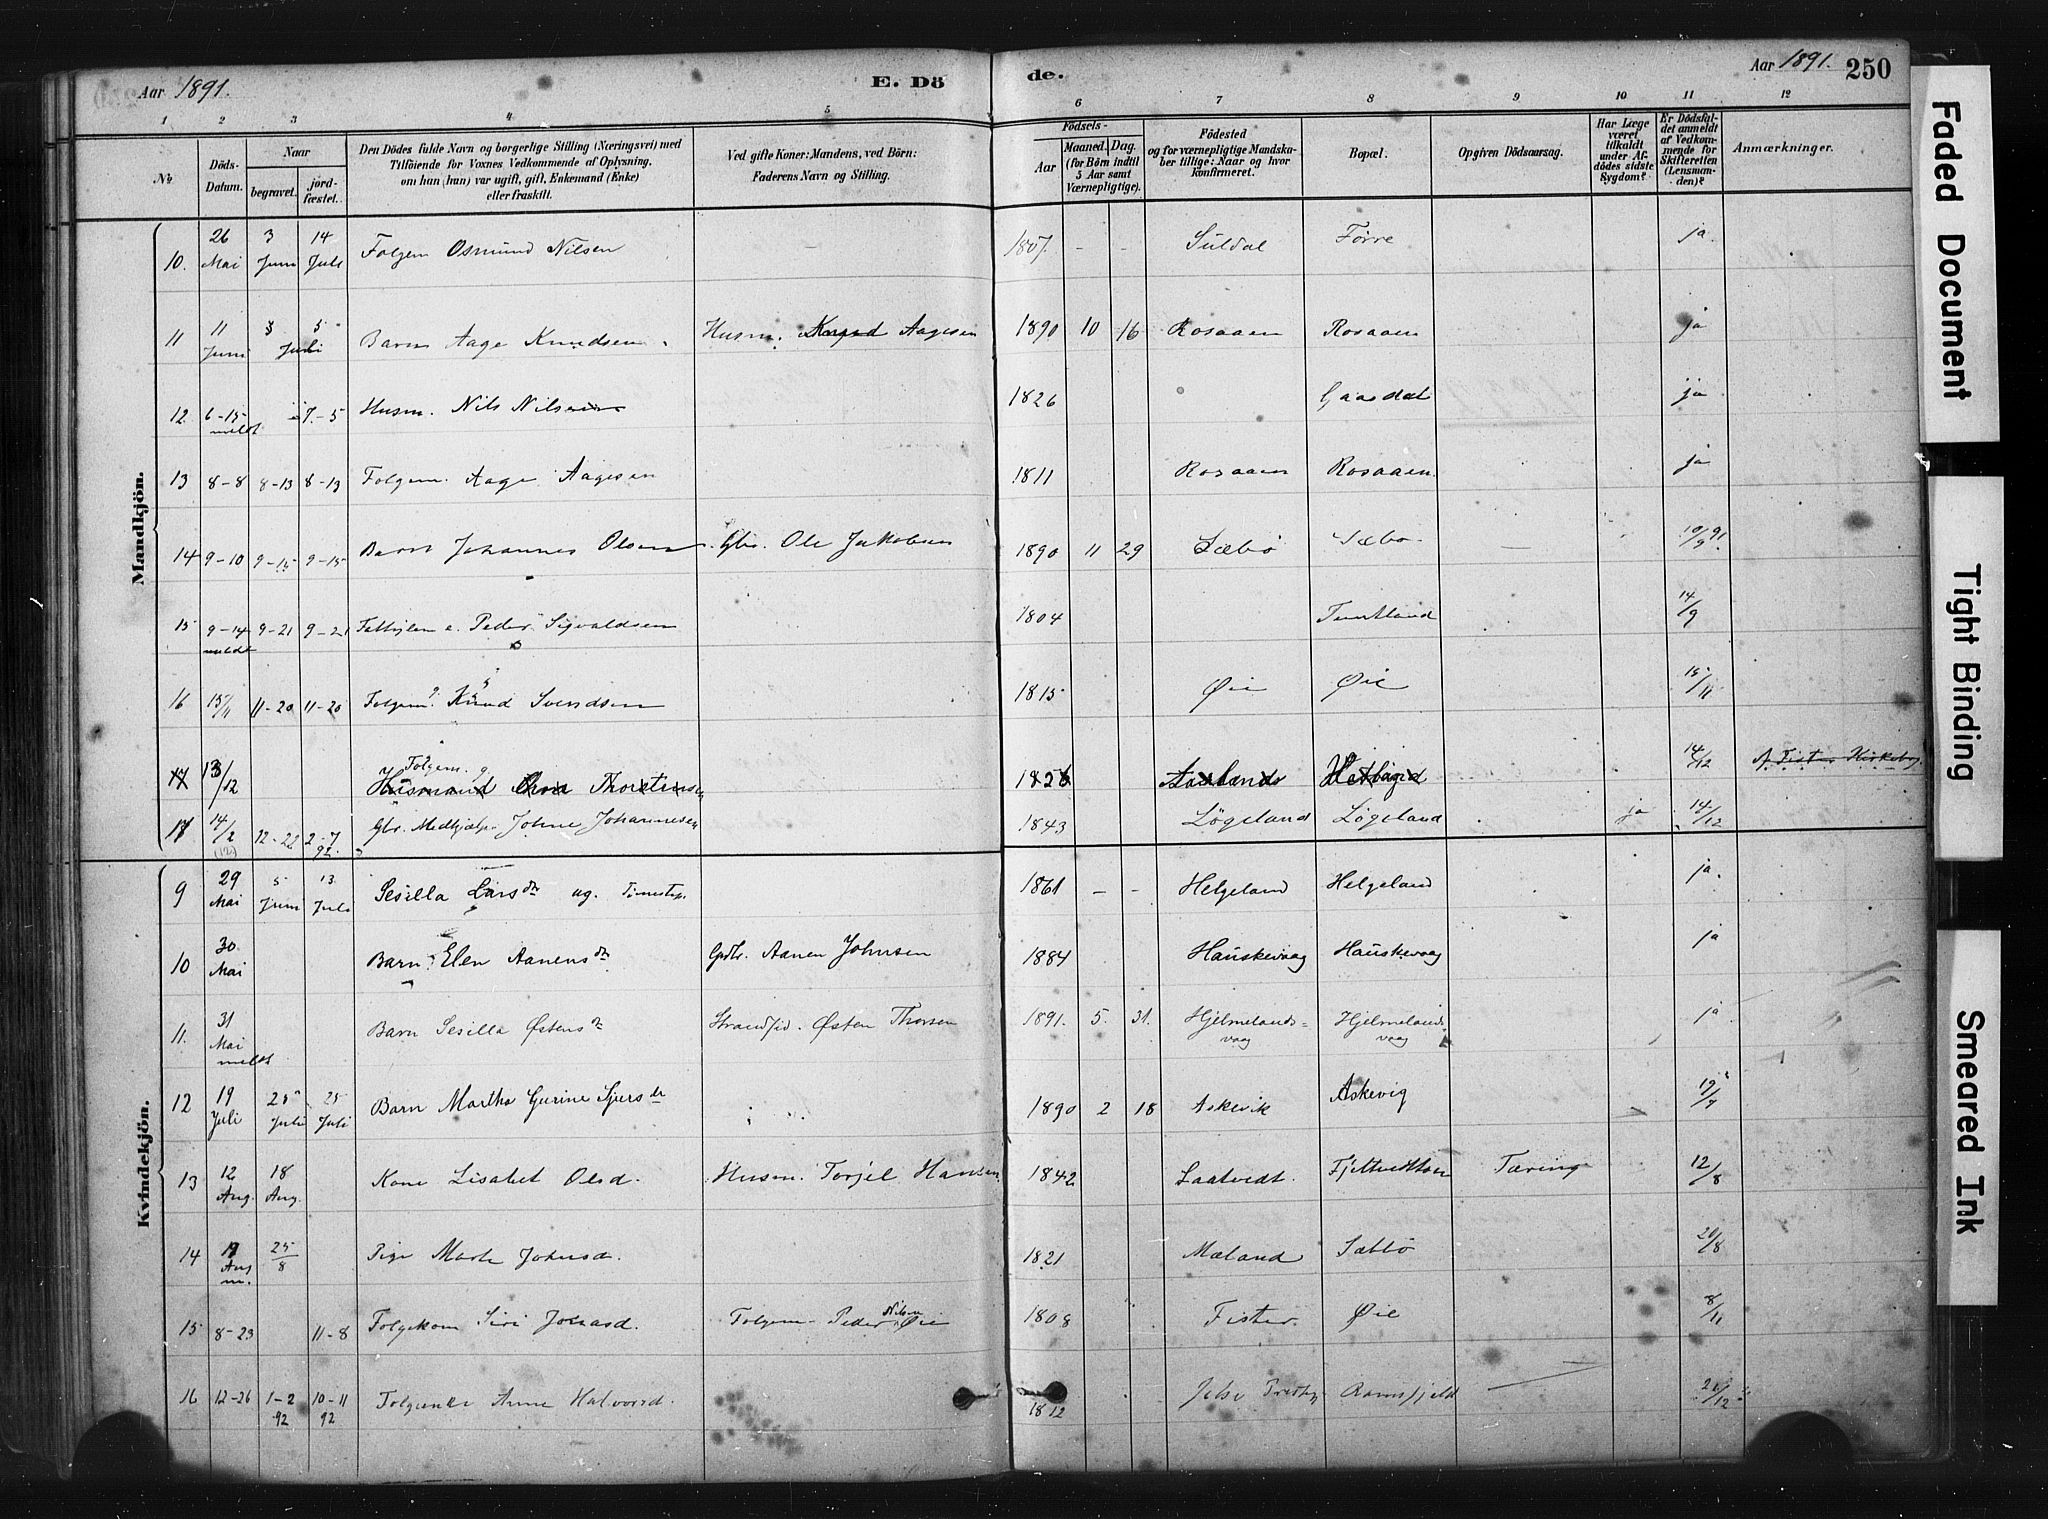 Aar 1891.
E. Dö
de.
Aar 1891. 250
1 2 3 4 5 6 7 8 9 10 11 12
No.
Döds-Datum.
Naar
begravet.
jordfæstet.
Den Dödes fulde Navn og borgerlige Stilling (Næringsvei) med
Tilföiende for Voxnes Vedkommende af Oplysning,
om han (hun) var ugift, gift, Enkemand (Enke)
eller fraskilt.
Ved gifte Koner: Mandens, ved Börn:
Faderens Navn og Stilling.
Födsels-
Aar
Maaned. Dag.
(for Börn indtil
5 Aar samt
Værnepligtige).
Födested
og for værnepligtige Mandska-
ber tillige: Naar og hvor
Konfirmeret.
Bopæl.
Opgiven Dödsaarsag.
Har Læge
været
tilkaldt
under Af-
dödes sidste
Sygdom?
Er Dödsfal-
det anmeldt
af Vedkom-
mende for
Skifteretten
(Lensman-
den)?
Anmærkninger.
Mandkjön.
10. 26 Mai 3 Juni 14 Juli Folgem Osmund Nilsen - 1807. - - Suldal Førre ja.
11 11 Juni 5 Juli Barn Aage Knudsen. Husm. Knud Aagesen 1890 10 16 Rosaaen Rosaaen ja
12 6-15 meldt 7-5 Husm. Nils Nilsen 1826 Gaasdal ja
13 8-8 8-13 8-13 Folgem. Aage Aagesen 1811 Rosaaen Rosaaen. ja
14 9-10 9-15 9-15 Barn Johannes Olsen Gbr. Ole Jakobsen 1890 11 29 Sæbø Sæbø — 10/9 91.
15 9-14 meldt 9-21 9-21 Peder Sigvaldsen 1804 Tuntland 14/9
16 15/11 11-20 11-20 Folgem. Knud Svendsen 1815 Øie Øie 15/11
17 13/12 Folgem. Husmand Thorstensen 1826 14/12 Af Fister Kirkebog
17 14/2 (12) 12-22 2-7 92. Gbr. Medhjælp. Johne Johannesen 1843 Løgeland Løgeland ja 14/12
Kvindekjön.
9 29 Mai 5 Juni 13 Juli Sesilla Larsdr ug. 1861 - - Helgeland Helgeland ja.
10 30 Mai Barn Elen Aanensdr Gdbr. Aanen Johnsen 1884 Hauskevaag Hauskevaag ja
11. 31 Mai meldt Barn Sesilla Østensdr Strandsid. Østen Thorsen 1891. 5. 31. Hjelmelands=vaag Hjelmelandsvaag ja
12 19 Juli 25 Juli 25 Juli Barn Martha Gurine Sjursdr 1890 2 18 Askevik Askevig 19/7
13 12 Aug. 18 Aug. Kone Lisabet Olsd. Husm. Torjel Hansen 1842 Laatvedt. Tæring 12/8
14 19 Aug m. 25/8 Pige Marte Johnsd. 1821 Mæland Sæbø 20/8
15 8-23 11-8 Folgekone Siri Jonasd. Folgem. Peder Nilsen Øie 1808 Fister. Øie 8/11
16 12-26 1-2 92 10-11 92 Folgeenke Anne Halvorsd. 1812 Jelse Præstegj. Ramsfjeld — 26/12
Faded Document
Tight Binding
Smeared Ink